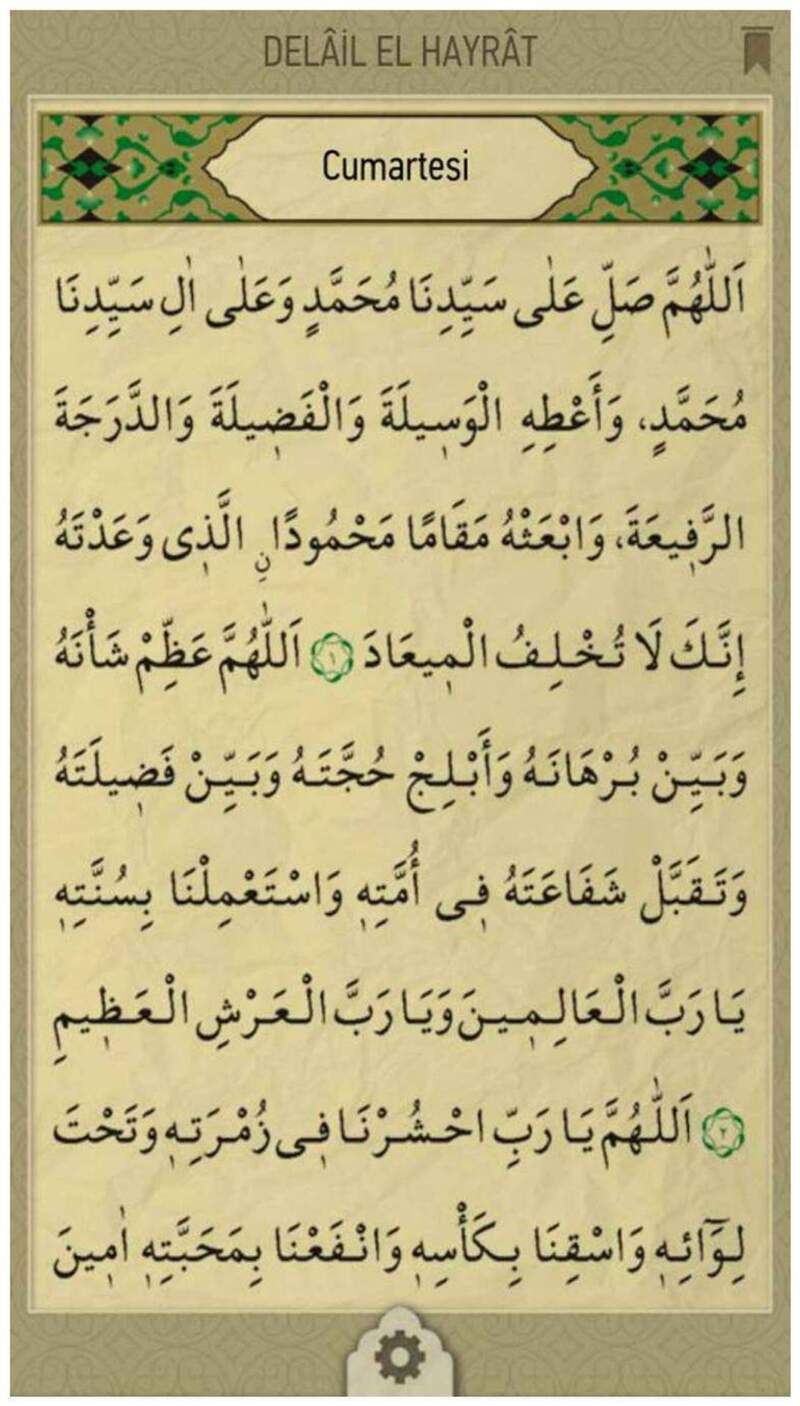 DELÂİL EL HAYRÂT
Cumartesi
اَللّٰهُمَّ صَلِّ عَلٰى سَيِّدِنَا مُحَمَّدٍ وَعَلٰى اٰلِ سَيِّدِنَا
مُحَمَّدٍ، وَأَعْطِهِ الْوَسٖيلَةَ وَالْفَضٖيلَةَ وَالدَّرَجَةَ
الرَّفٖيعَةَ، وَابْعَثْهُ مَقَامًا مَحْمُودًا نِ الَّذٖى وَعَدْتَهُ
إِنَّكَ لَا تُخْلِفُ الْمٖيعَادَ ١ اَللّٰهُمَّ عَظِّمْ شَأْنَهُ
وَبَيِّنْ بُرْهَانَهُ وَأَبْلِجْ حُجَّتَهُ وَبَيِّنْ فَضٖيلَتَهُ
وَتَقَبَّلْ شَفَاعَتَهُ فٖى أُمَّتِهٖ وَاسْتَعْمِلْنَا بِسُنَّتِهٖ
يَا رَبَّ الْعَالِمٖينَ وَيَا رَبَّ الْعَرْشِ الْعَظٖيمِ
٢ اَللّٰهُمَّ يَا رَبِّ احْشُرْنَا فٖى زُمْرَتِهٖ وَتَحْتَ
لِوَٓائِهٖ وَاسْقِنَا بِكَأْسِهٖ وَانْفَعْنَا بِمَحَبَّتِهٖ اٰمٖينَ